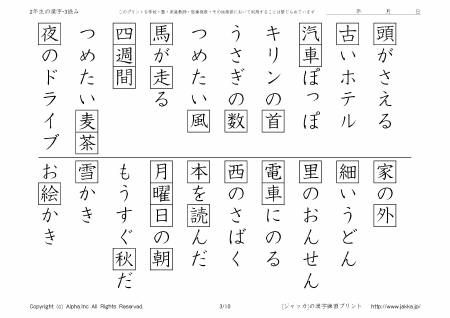 2年生の漢字-3読み
このプリントを学校・塾・家庭教師・医療機関・その他施設において利用することは禁じられています
年 月 日
頭がさえる
古いホテル
汽車ぽっぽ
キリンの首
うさぎの数
つめたい風
馬が走る
四週間
つめたい麦茶
夜のドライブ
家の外
細いうどん
里のおんせん
電車にのる
西のさばく
本を読んだ
月曜日の朝
もうすぐ秋だ
雪かき
お絵かき
Copyright (c) Alpha.Inc All Rights Reserved.
3/10
[ジャッカ]の漢字練習プリント http://www.jakka.jp/